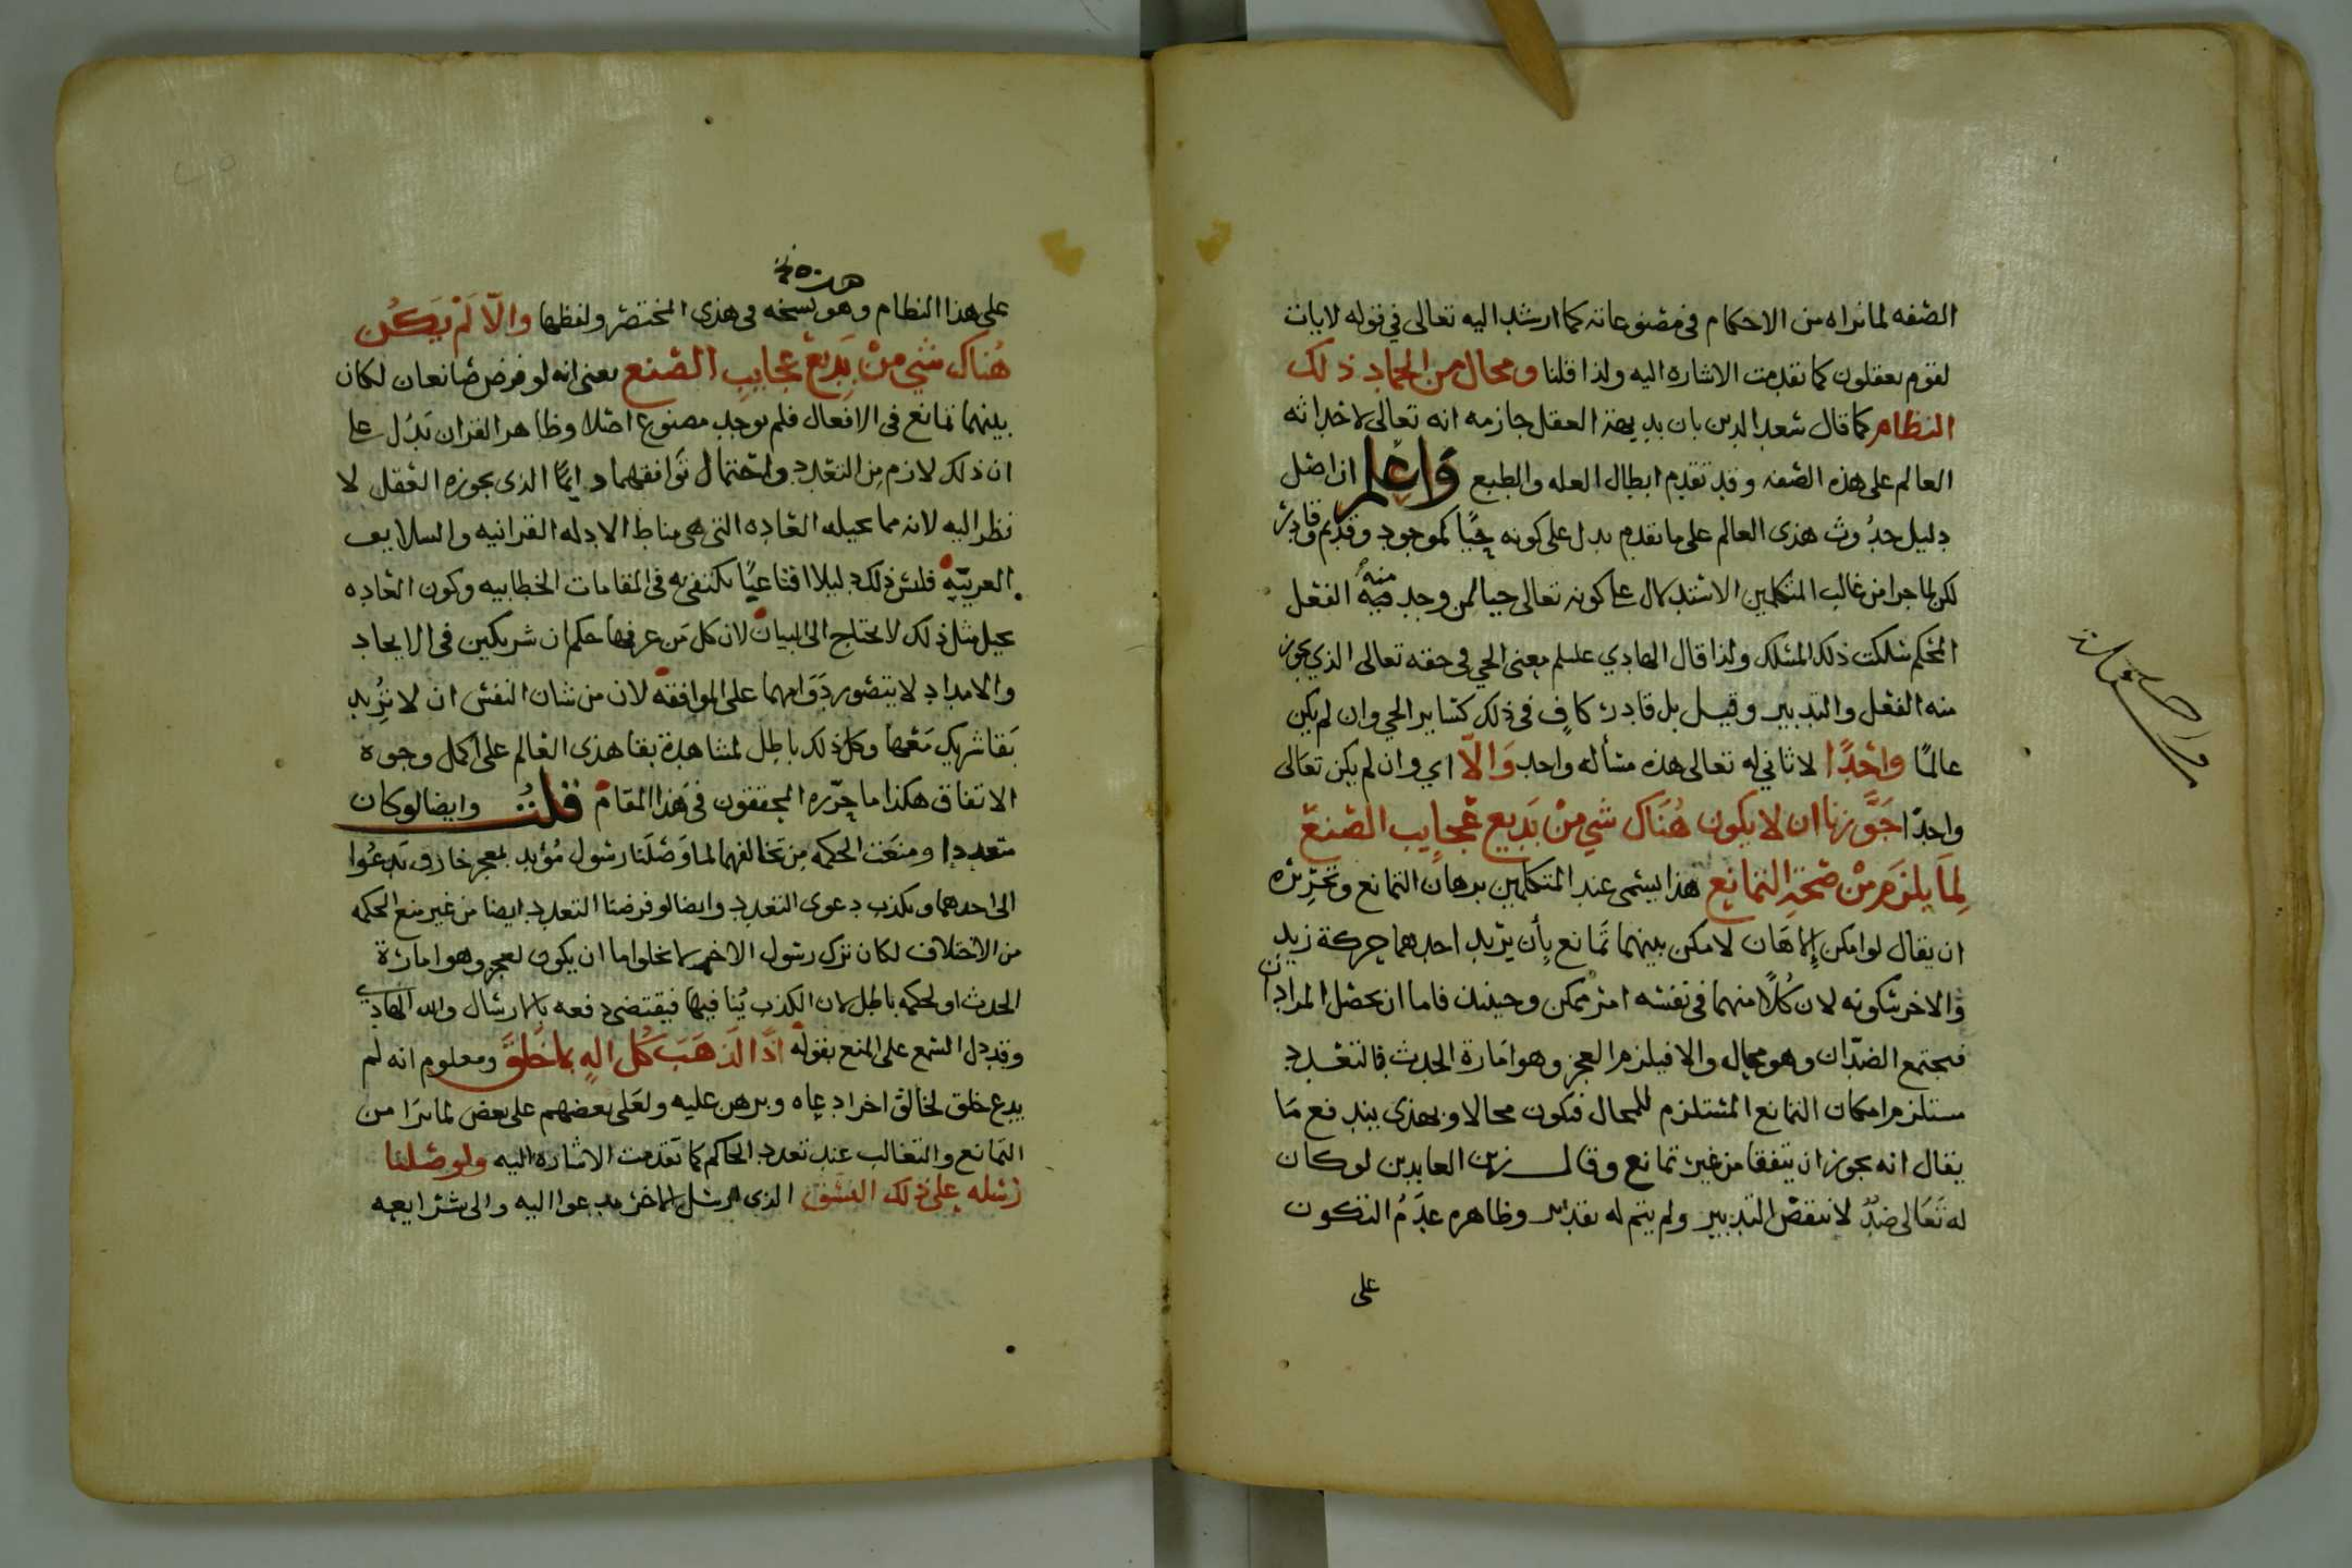 الصفه لما نراه من الاحكام في مصنوعاته كما ارشد اليه تعالى في قوله لايات
لقوم يعقلون كما تقدمت الاشاره اليه ولذا قلنا ومحال من الجماد ذلك
النظام كما قال سعد الدين بان بديهة العقل جازمه انه تعالى لاحداثه
العالم على هذه الصفه وقد تقدم ابطال العله والطبع وَاعلم ان اصل
دليل حدُوث هذى العالم على ما تقدم يدل على كونه حيًا كموجود وقديم وقادر
لكن لما جرا من غالب المتكلمين الاستدلال على كونه تعالى حيا لمن وجد منه الفعل
المحكم سلكت ذلك المسلك ولذا قال الهادي علسلم معنى الحي في حقه تعالى الذي يجوز
منه الفعل والتدبير وقيل بل قادر كافٍ في ذلك كساير الحي وان لم يكن
عالمًا واحدًا لا ثاني له تعالى هذه مسأله واحد وَالّا اي وان لم يكن تعالى
واحدًا جَوَّزنا ان لا يكون هُنَاك شي مِنْ بَدِيع عجايب الصنع
لِمَا يلزم مِنْ صحّة التمانع هذا يسمى عند المتكلمين برهان التمانع وتحريره
ان يقال لو امكن إلاهَان لامكن بينهما تمَانع بأن يريد احدهما حركة زيد
وَالاخر سكونه لان كُلًا منهما في نفسه امر ممكن وحينئذ فاما ان يحصل المرادان
فيجتمع الضدّان وهو محال والا فيلزم العجز وهو امَارة الحدث فالتعدد
مستلزم امكان التمانع المستلزم للمحال فيكون محالا وبهذى يندفع مَا
يقال انه يجوز ان يتفقا من غير تمانع وقال زين العابدين لو كان
له تعَالى ضِدٌ لانتقض التدبير ولم يتم له تقدير وظاهره عدَمُ التكون
على
هذه نخ
على هذا النظام وهو نسخه في هذى المختصر ولفظها والّا لَمْ يَكُن
هُناك شي مِنْ بَدِيع عجايبِ الصّنع يعني انه لو فرض صانعان لكان
بينهما تمانع في الافعال فلم يوجد مصنوع اصلا وظاهر القران يَدُل على
ان ذلك لازم مِن التعدد واحتمال تَوَافقهما دايمًا الذى يجوزه العقل لا
نظر اليه لانه مما تحيله العَاده التى هى مناط الادله القرانيه والسلايف
العربيّه فليس ذلك دليلا اقناعيًا يكتفى به في المقامات الخطابيه وكون العَاده
تحيل مثل ذلك لا يحتاج الى البيان لان كل مَن عرفها حكم ان شريكين في الايجاد
والامداد لا يتصور دَوَامهما على الموافقه لان من شان النفس ان لا تريد
بَقا شريك مَعها وكل ذلك باطل لمشاهدة بقا هذى العالم على اكمل وجوه
الاتفاق هكذا ما حرّره المحققون في هَذا المقام قلتُ وايضا لو كان
متعددا ومنعَت الحكمه مِن تخالفهما لما وَصَلنا رسول مُؤيد بمعجز خارق يَدعُوا
الى احدهما ويكذب دعوى التعدد وايضا لو فرضنا التعدد ايضا من غير منع الحكمه
من الاختلاف لكان ترك رسول الاخر لا يخلوا اما ان يكون لعجز وهو امارة
الحدث او لحكمه باطل لان الكذب يُنافيها فيقتضى دفعه بالارسال والله الهَادي
وقد دل السمع على المنع بقوله اذًا لَذهَبَ كُل الهٍ بما خَلق ومعلوم انه لم
يدع خلق لخالق اخر ادعاه وبرهن عليه ولعَلى بعضهم على بعض لما نرَا من
التمانع والتغالب عند تعدد الحاكم كما تقدمت الاشاره اليه ولوصلنا
رسله على ذلك النسق الذى ارسل الاخر يدعوا اليه والى شرايعه